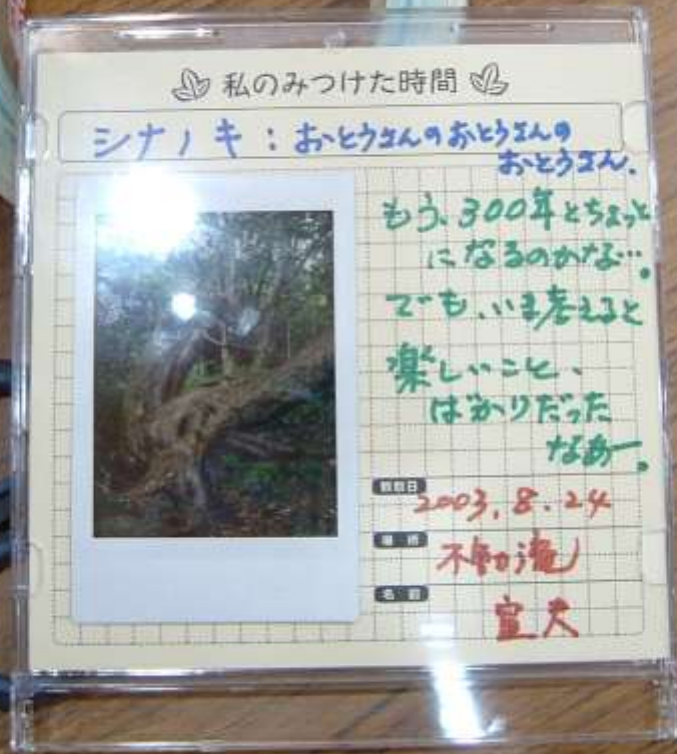 私のみつけた時間
シナノキ：おとうさんのおとうさんの
おとうさん.
もう、300年とちょっと
になるのかな…。
でも、いま考えると
楽しいこと、
ばかりだった
なあー。
2003.8.24
場所
不動滝
名前
宣夫